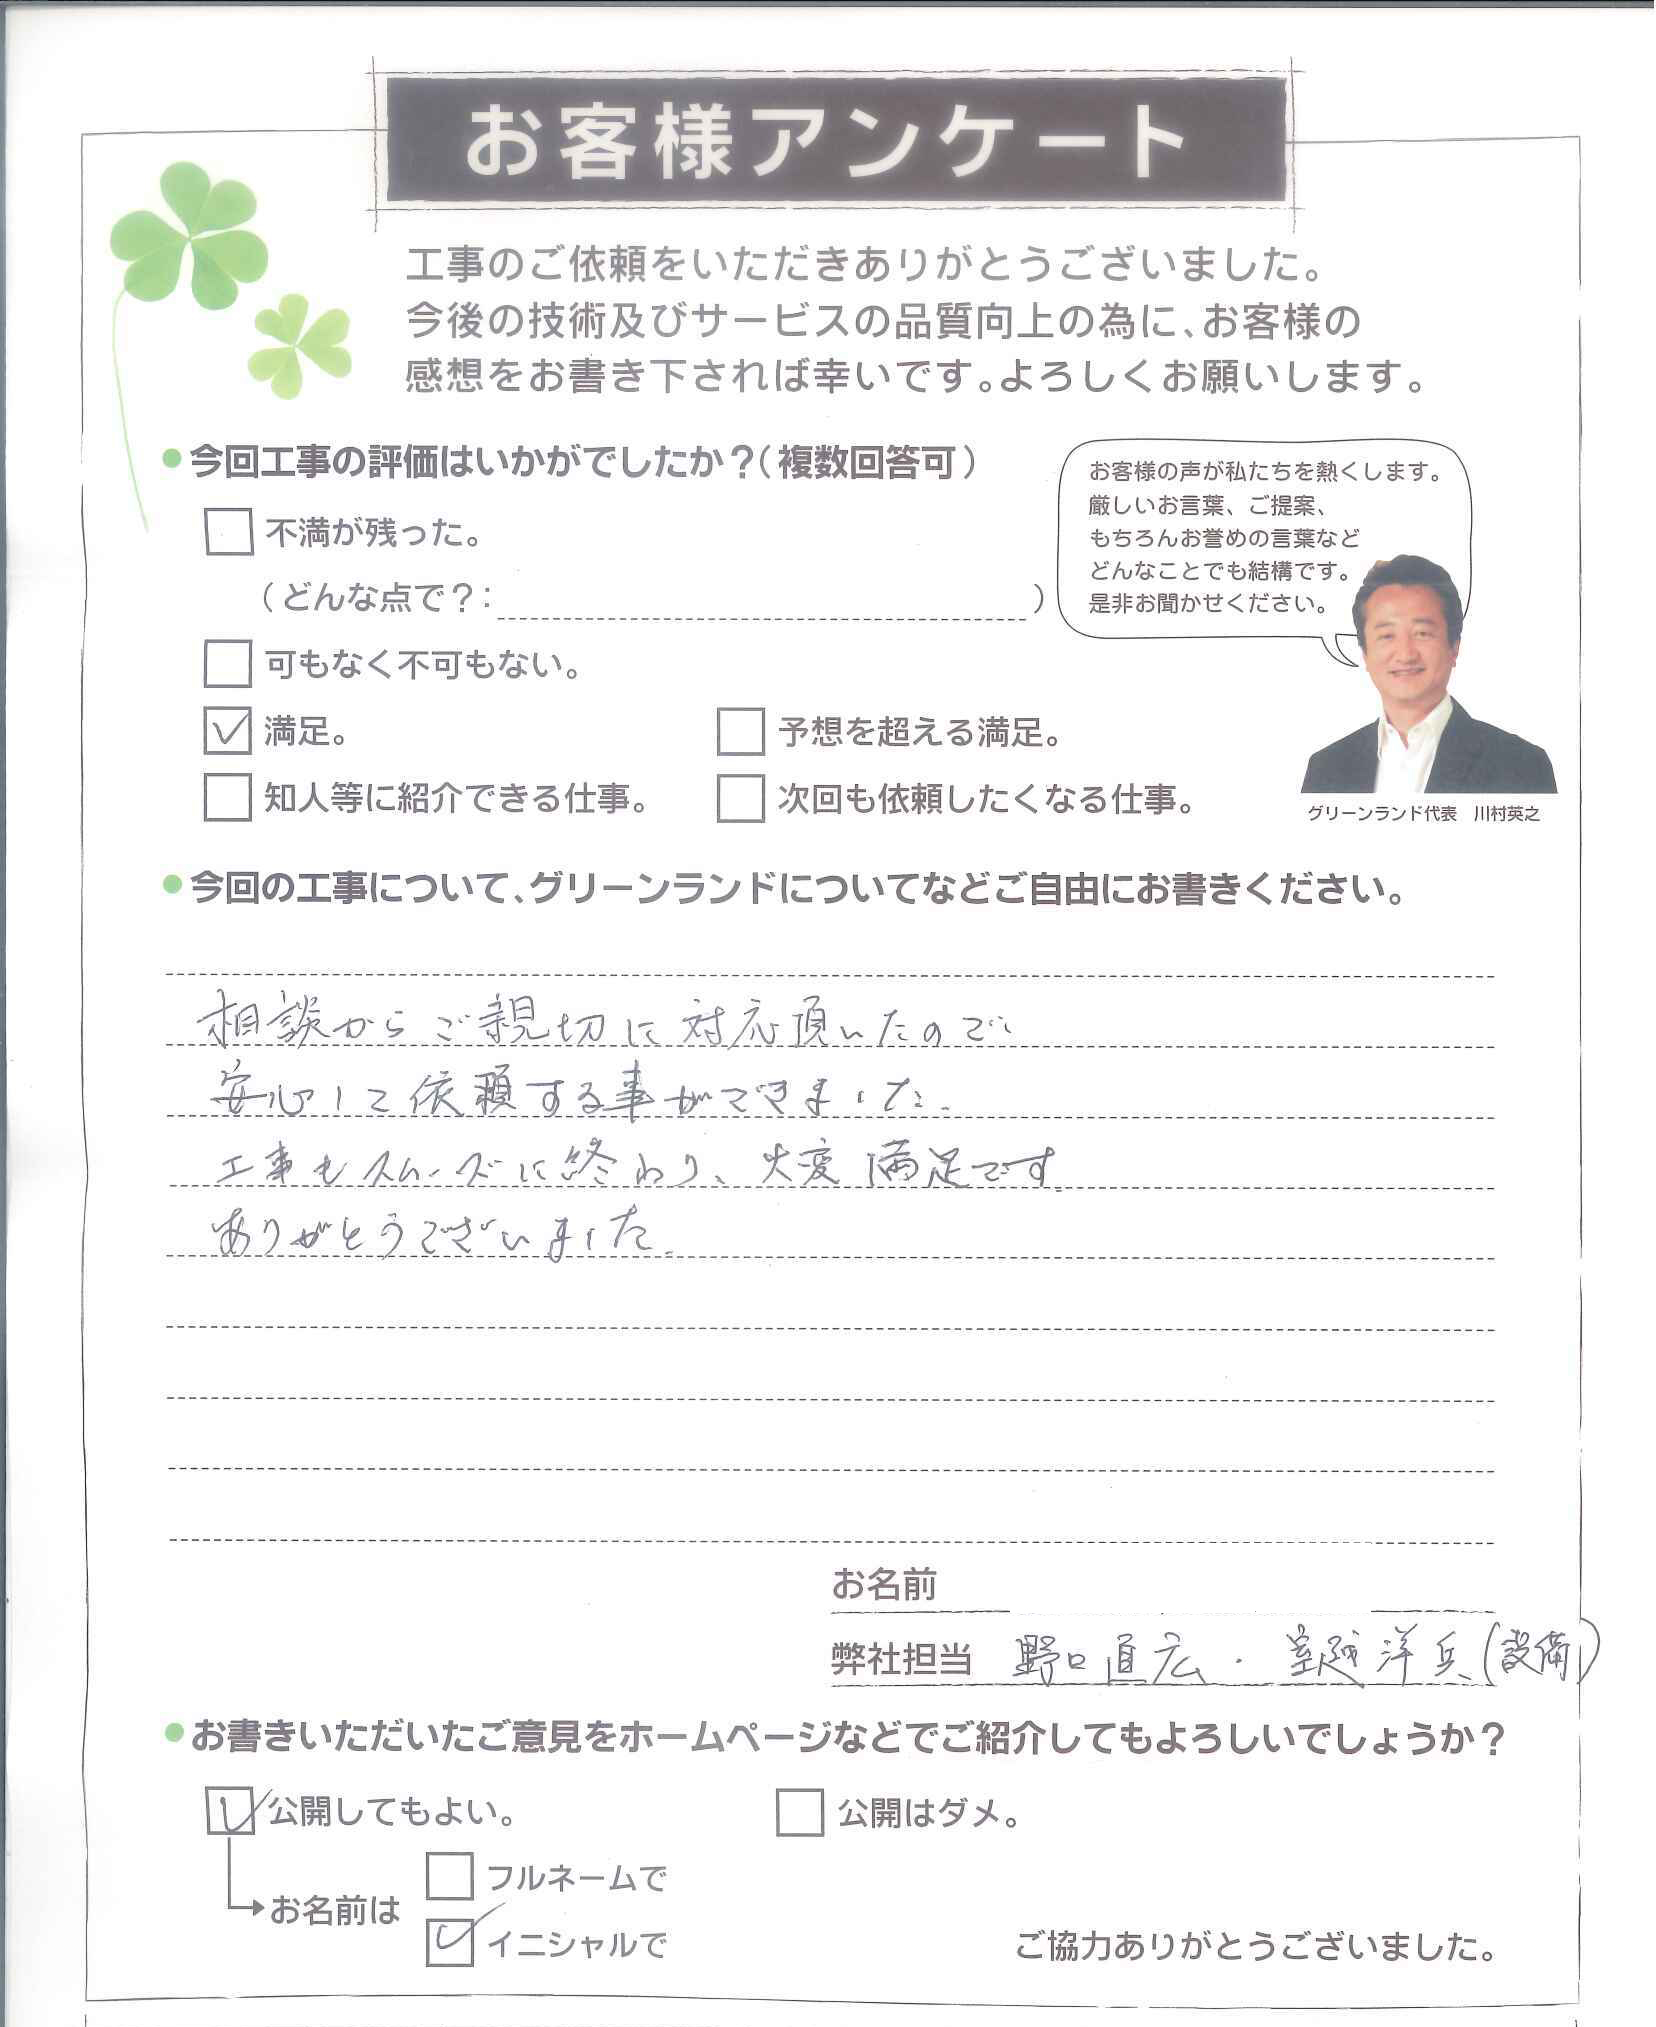 お客様アンケート
工事のご依頼をいただきありがとうございました。
今後の技術及びサービスの品質向上の為に、お客様の
感想をお書き下されば幸いです。よろしくお願いします。
●今回工事の評価はいかがでしたか？（複数回答可）
不満が残った。
（どんな点で？： ）
可もなく不可もない。
満足。
予想を超える満足。
知人等に紹介できる仕事。
次回も依頼したくなる仕事。
お客様の声が私たちを熱くします。
厳しいお言葉、ご提案、
もちろんお誉めの言葉など
どんなことでも結構です。
是非お聞かせください。
グリーンランド代表　川村英之
●今回の工事について、グリーンランドについてなどご自由にお書きください。
相談からご親切に対応頂いたので、
安心して依頼する事ができました。
工事もスムーズに終わり、大変満足です。
ありがとうございました。
お名前
弊社担当 野口直広・室越洋兵(設備)
●お書きいただいたご意見をホームページなどでご紹介してもよろしいでしょうか？
公開してもよい。
公開はダメ。
お名前は
フルネームで
イニシャルで
ご協力ありがとうございました。